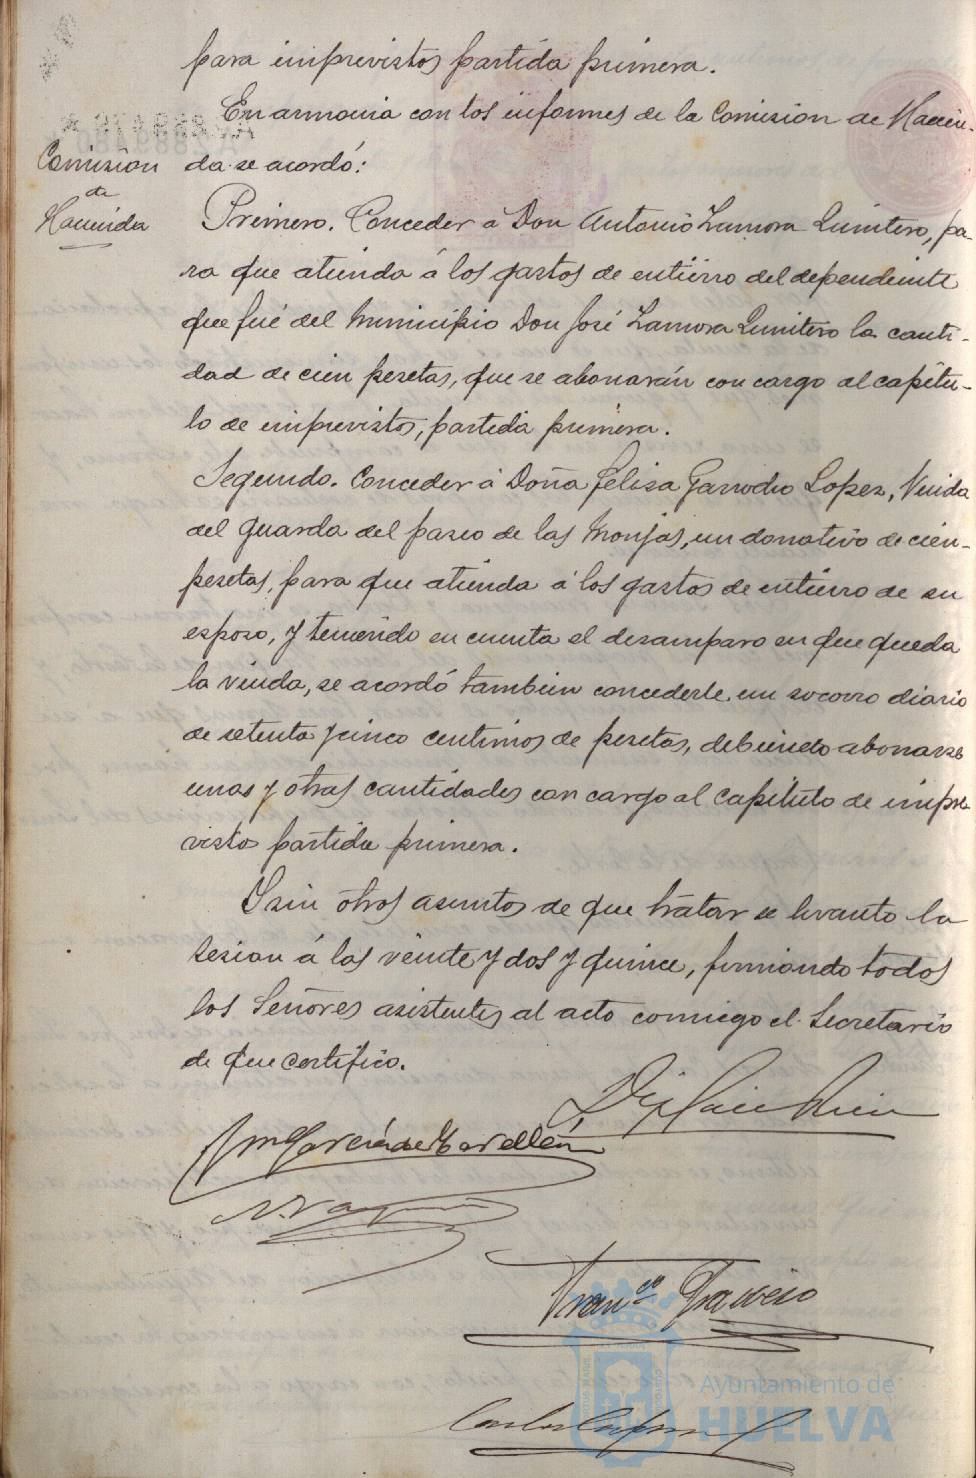 para imprevistos partida primera.
En armonia con los informes de la Comision de Hacien-
Comision
de
Hacienda
da se acordó:
Primero. Conceder á Don Antonio Zamora Quintero, pa-
ra que atienda á los gastos de entierro del dependiente
que fué del Municipio Don José Zamora Quintero la canti-
dad de cien pesetas, que se abonarán con cargo al capítu-
lo de imprevistos, partida primera.
Segundo. Conceder á Doña Felisa Garrocho Lopez, Viuda
del guarda del paseo de las Monjas, un donativo de cien-
pesetas, para que atienda á los gastos de entierro de su
esposo, y teniendo en cuenta el desamparo en que queda
la viuda, se acordó tambien concederle un socorro diario
de setenta y cinco centimos de pesetas, debiendo abonarse
unas y otras cantidades con cargo al capitulo de impre-
visto partida primera.
Y sin otros asuntos de que tratar se levanto la
sesion á las veinte y dos y quince, firmando todos
los Señores asistentes al acto conmigo el Secretario
de que certifico.
Franco
Ayuntamiento de
HUELVA